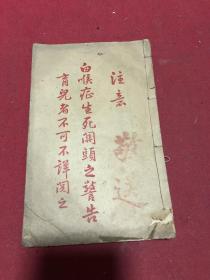 注意
敬送
白喉症生死關頭之警告
育兒者不可不詳閱之